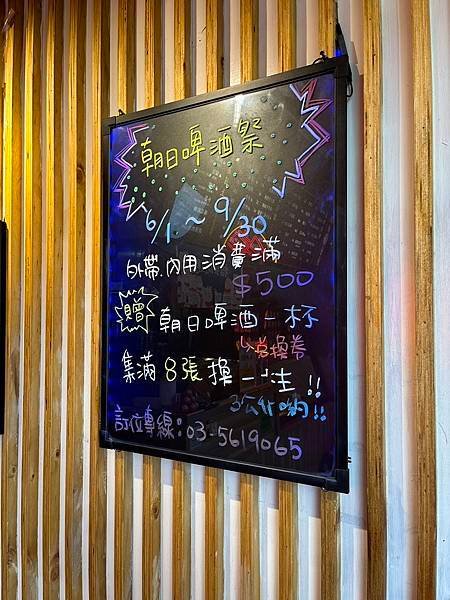 朝日啤酒祭
6/1~9/30
外帶.內用消費滿
$500
贈 朝日啤酒一杯
兌換券
集滿8張換一注!!
3公升喲!!
訂位專線:03-5619065